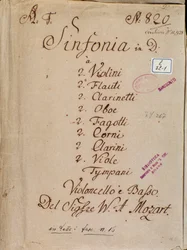 N. 820
Sinfonia in D.
à
2. Violini
2. Flauti
2. Clarinetti
2. Oboe
2. Fagotti
2. Corni
2. Clarini
2. Viole
Tympani
Violoncello e Basso
Del Sigre W. A. Mozart.